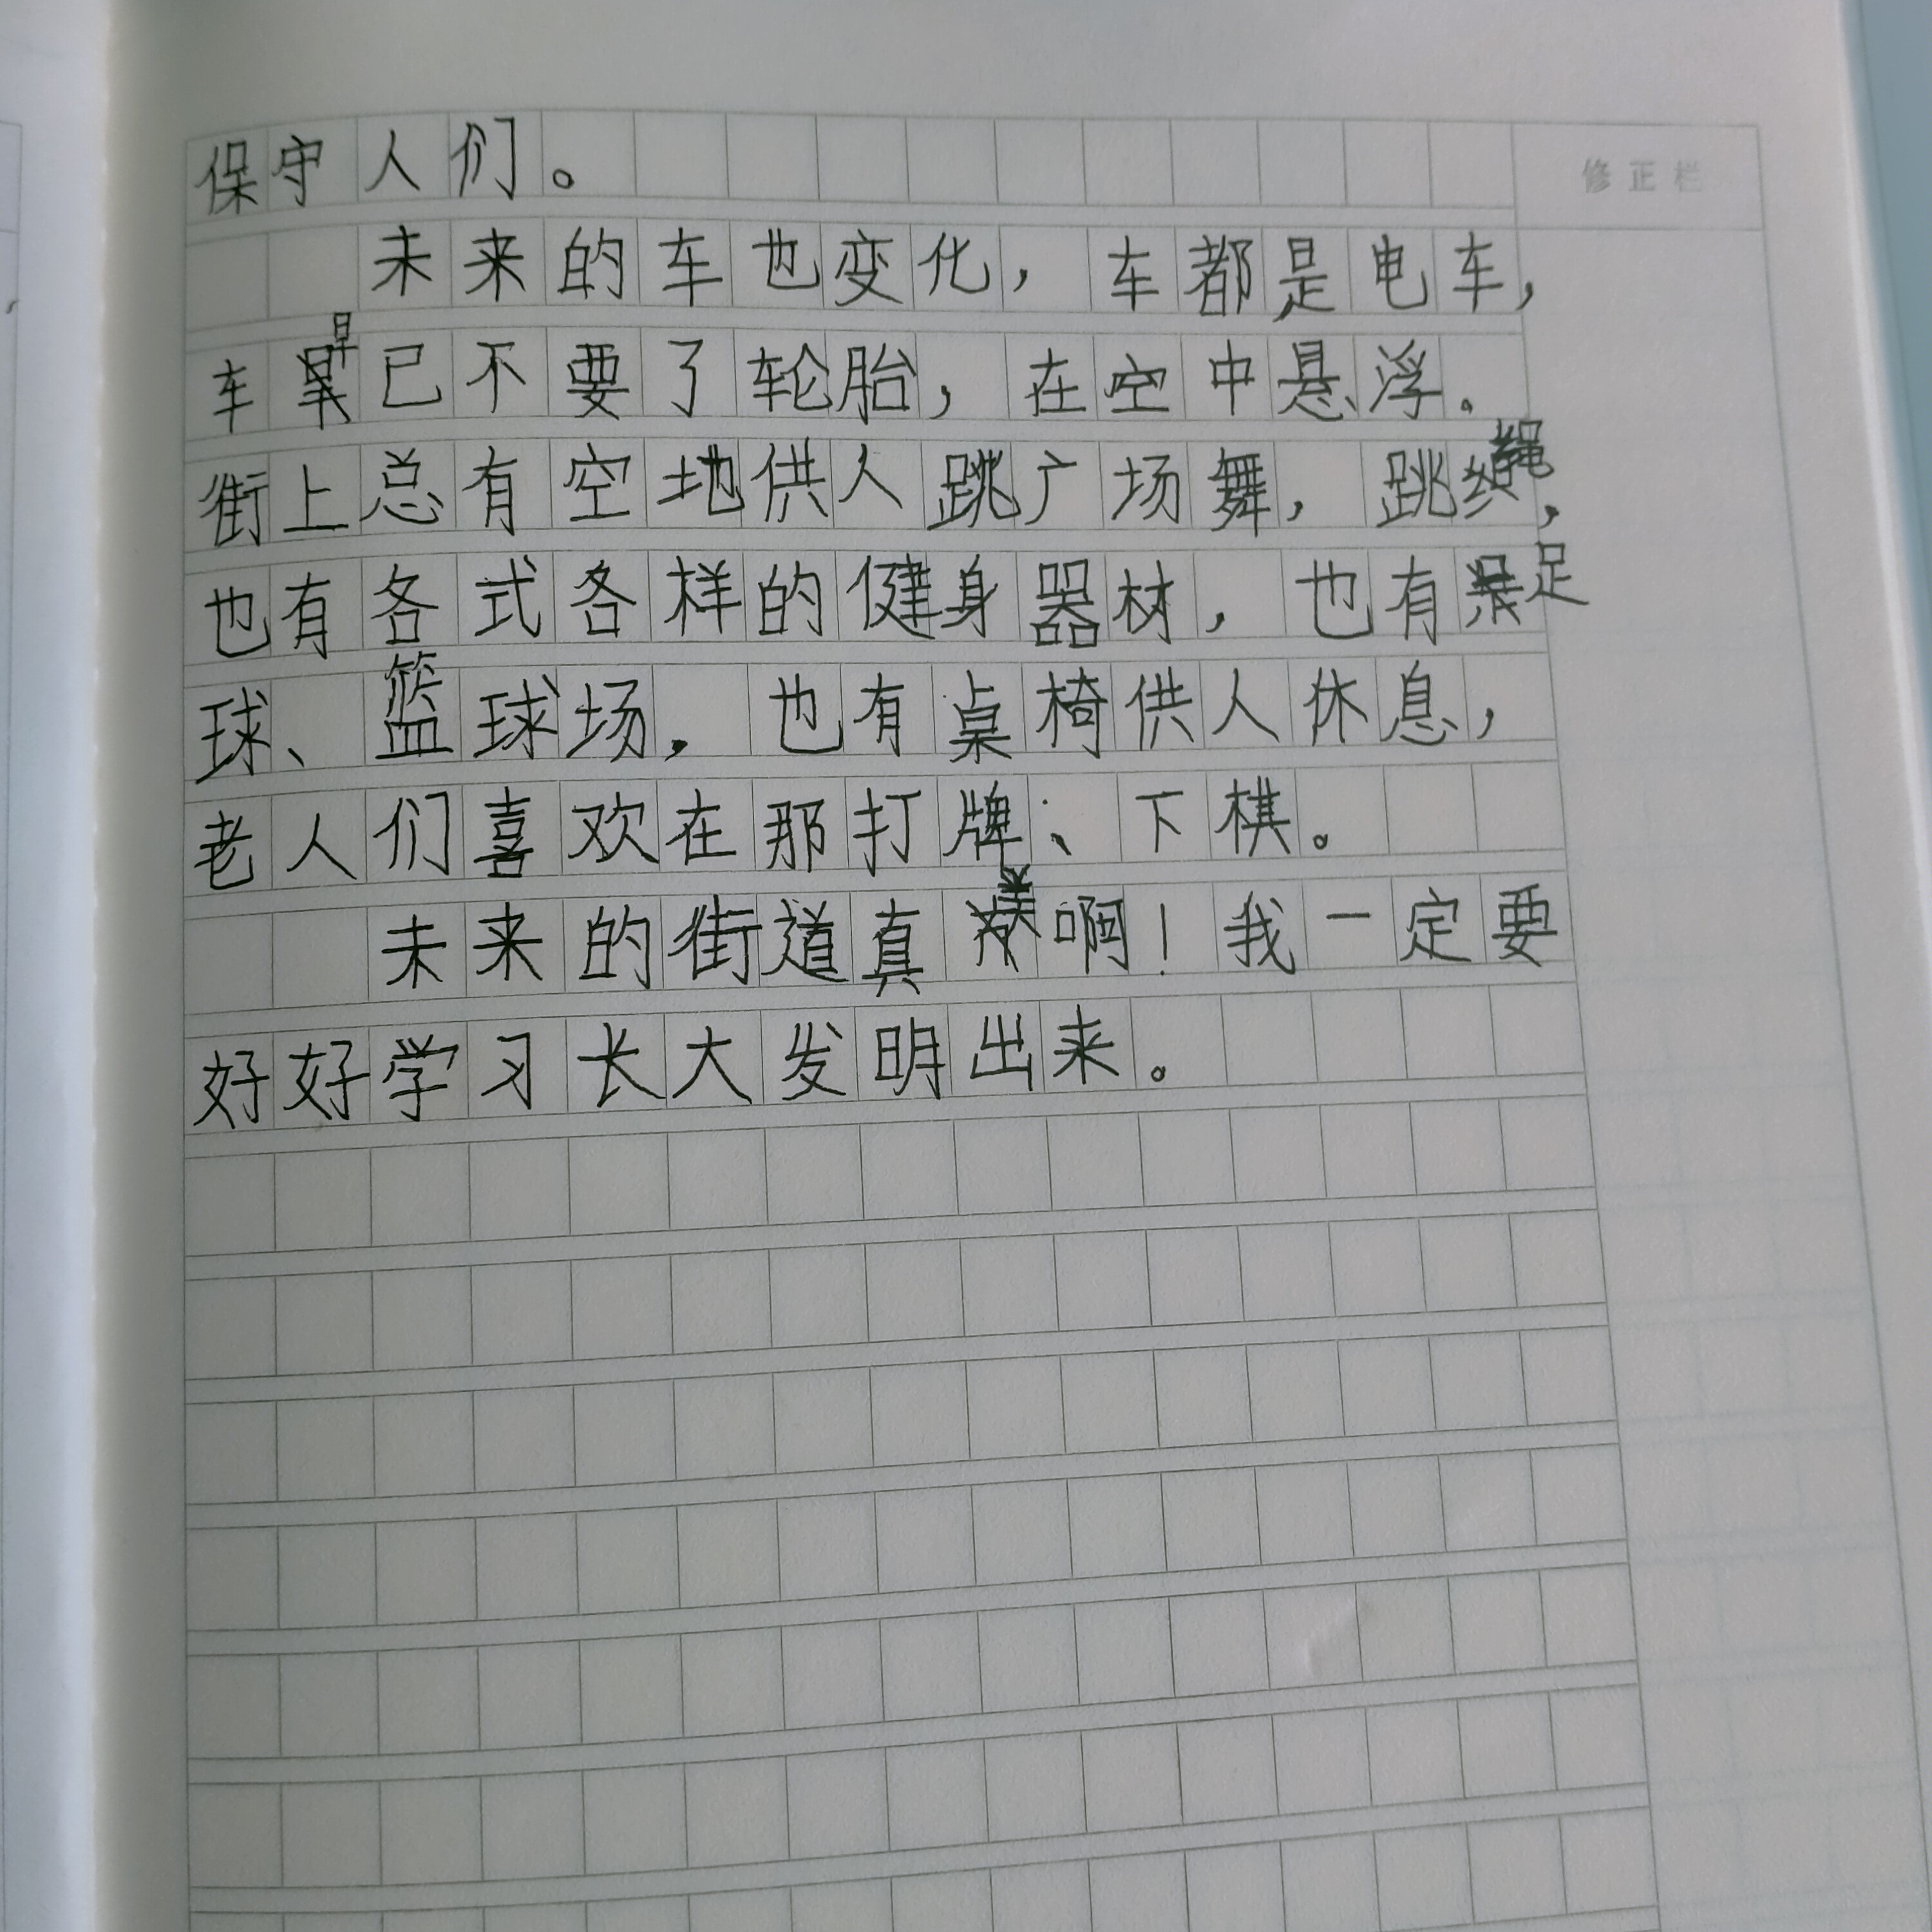 保守人们。
修正栏
未来的车也变化，车都是电车，
车早已不要了轮胎，在空中悬浮。
街上总有空地供人跳广场舞，跳绳，
也有各式各样的健身器材，也有足
球、篮球场，也有桌椅供人休息，
老人们喜欢在那打牌、下棋。
未来的街道真美啊！我一定要
好好学习长大发明出来。